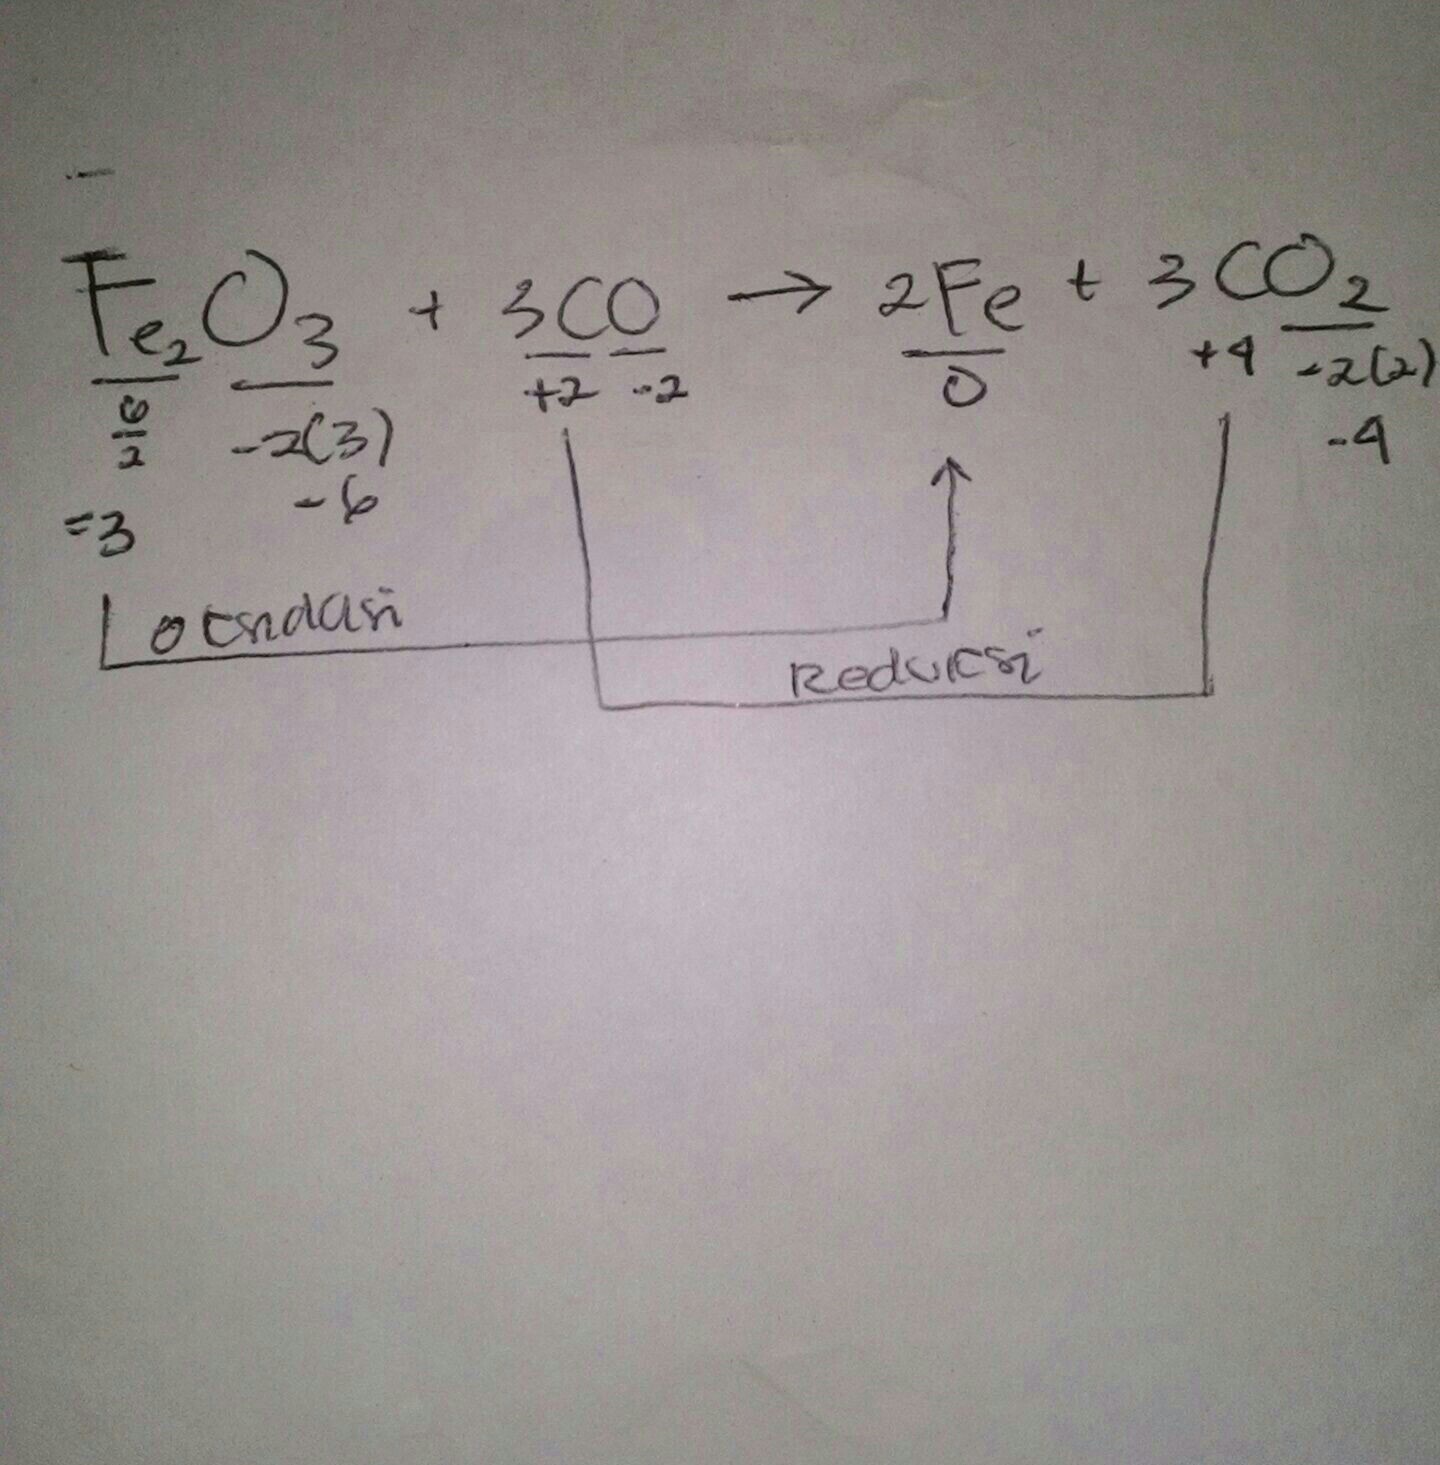 Fe₂O₃ + 3CO → 2Fe + 3CO₂
6/2 -2(3) +2 -2 0 +4 -2(2)
=3 -6 -4
oksidasi
Reduksi